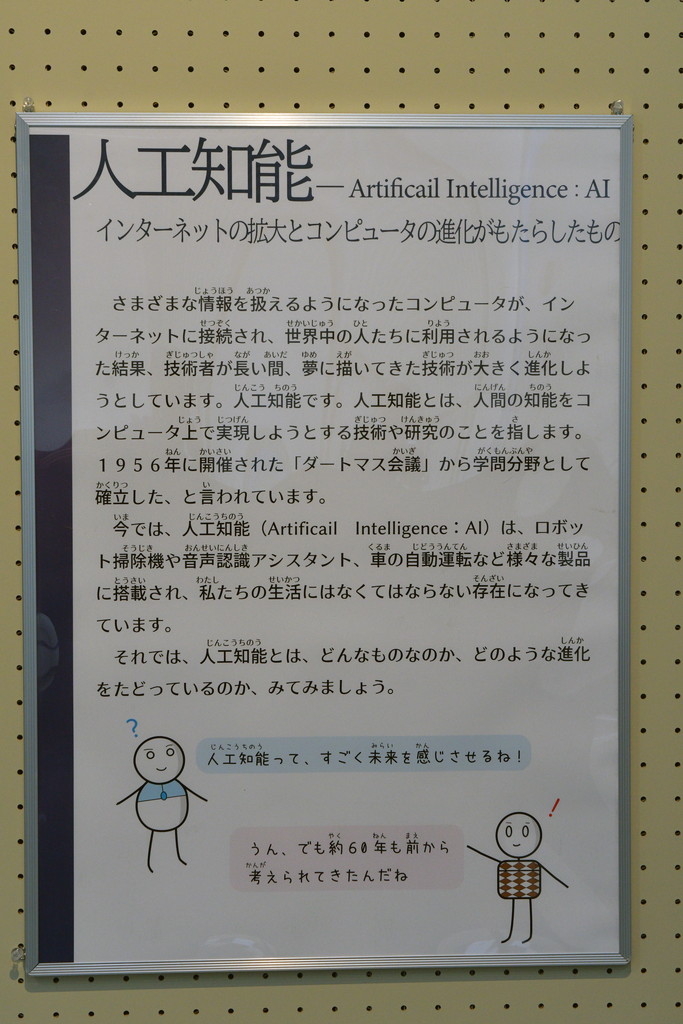 人工知能 ― Artificail Intelligence : AI
インターネットの拡大とコンピュータの進化がもたらしたもの
さまざまな情報を扱えるようになったコンピュータが、イン
ターネットに接続され、世界中の人たちに利用されるようになっ
た結果、技術者が長い間、夢に描いてきた技術が大きく進化しよ
うとしています。人工知能です。人工知能とは、人間の知能をコ
ンピュータ上で実現しようとする技術や研究のことを指します。
1956年に開催された「ダートマス会議」から学問分野として
確立した、と言われています。
今では、人工知能（Artificail Intelligence：AI）は、ロボッ
ト掃除機や音声認識アシスタント、車の自動運転など様々な製品
に搭載され、私たちの生活にはなくてはならない存在になってき
ています。
それでは、人工知能とは、どんなものなのか、どのような進化
をたどっているのか、みてみましょう。
?
人工知能って、すごく未来を感じさせるね！
!
うん、でも約60年も前から
考えられてきたんだね